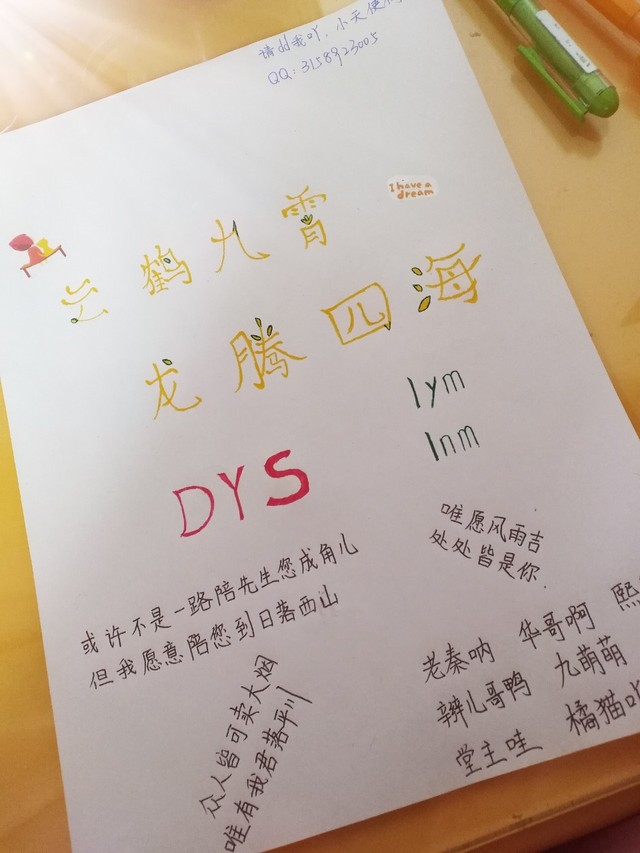 请dd我吖，小天使们
QQ:3158923005
I have a
dream
云鹤九霄
龙腾四海
lym
lnm
DYS
唯愿风雨吉
处处皆是你
或许不是一路陪先生您成角儿
但我愿意陪您到日落西山
众人皆可卖大烟
唯有我君落平川
老秦呐 华哥啊 熙
辫儿哥鸭 九萌萌
堂主哇 橘猫吖